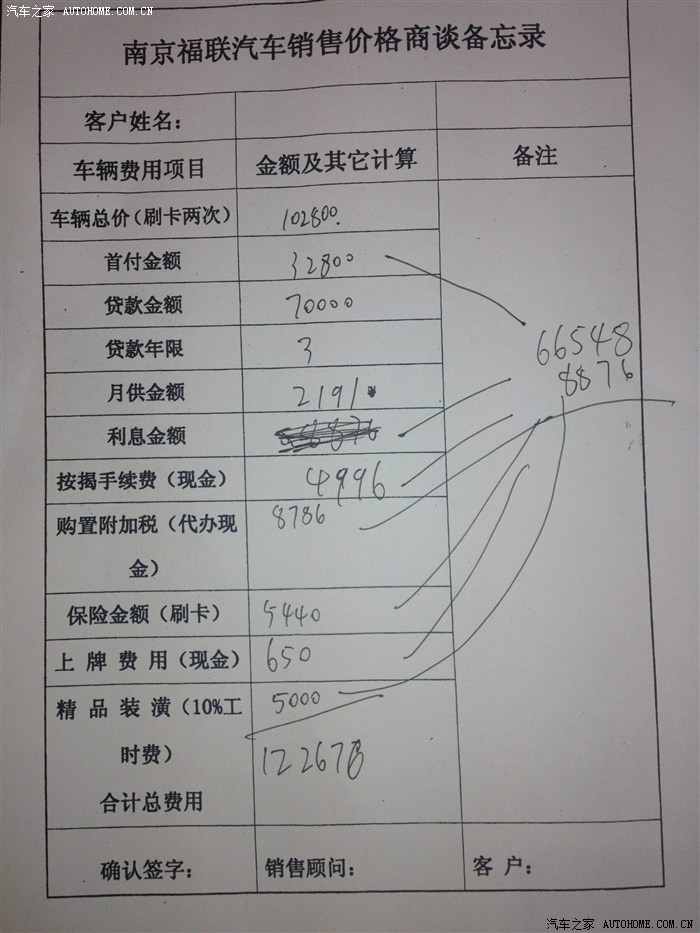 汽车之家 AUTOHOME.COM.CN
南京福联汽车销售价格商谈备忘录
客户姓名：
车辆费用项目 金额及其它计算 备注
车辆总价（刷卡两次） 102800.
首付金额 32800
贷款金额 70000
贷款年限 3
66548
月供金额 2191
8876
利息金额
按揭手续费（现金） 4996
购置附加税（代办现 8786
金）
保险金额（刷卡） 5440
上牌费用（现金） 650
精品装潢（10%工 5000
时费） 122678
合计总费用
确认签字： 销售顾问： 客户：
汽车之家 AUTOHOME.COM.CN